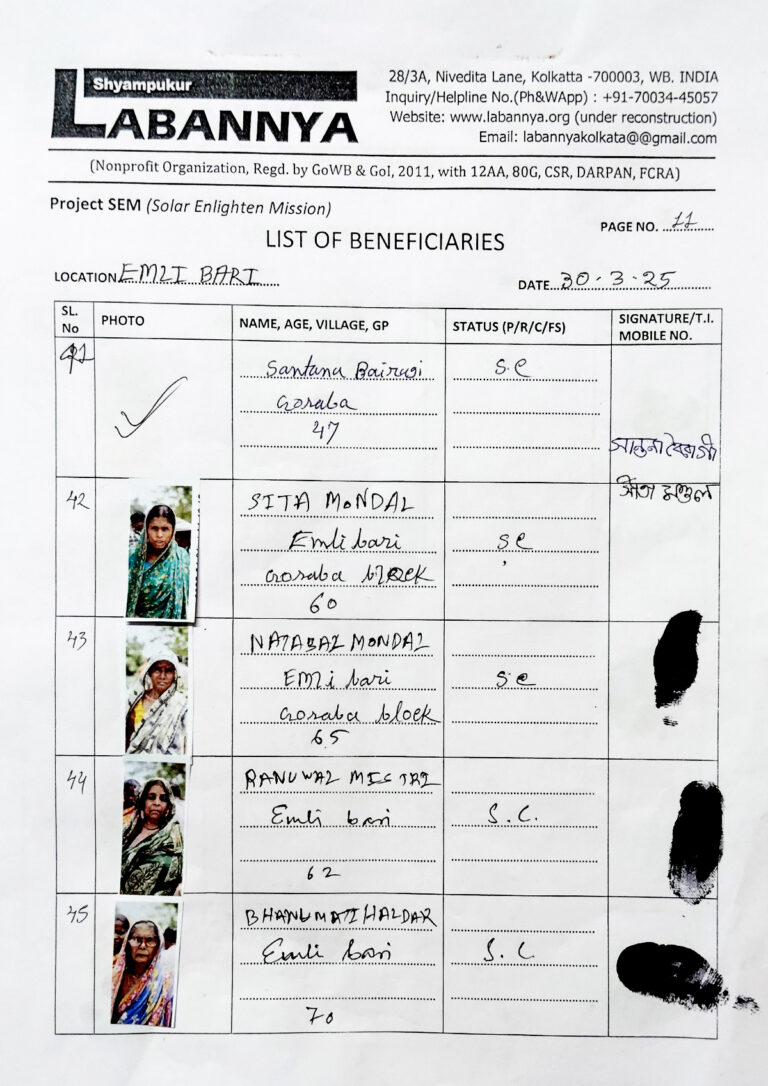 Shyampukur
LABANNYA
28/3A, Nivedita Lane, Kolkatta -700003, WB. INDIA
Inquiry/Helpline No.(Ph&WApp) : +91-70034-45057
Website: www.labannya.org (under reconstruction)
Email: labannyakolkata@@gmail.com
(Nonprofit Organization, Regd. by GoWB & GoI, 2011, with 12AA, 80G, CSR, DARPAN, FCRA)
Project SEM (Solar Enlighten Mission)
PAGE NO. 11
LIST OF BENEFICIARIES
LOCATION EMLI BARI
DATE 30.3.25
SL. No PHOTO NAME, AGE, VILLAGE, GP STATUS (P/R/C/FS) SIGNATURE/T.I. MOBILE NO.
41 Santana Bairagi S.C
Gosaba
47
সান্তনা বৈরাগী
42 SITA MONDAL
সীতা মণ্ডল
Emli bari S.C
Gosaba block
60
43 NATABAL MONDAL
EMli bari S.C
Gosaba block
65
44 RANUWAL MISTRI
Emli bari S.C.
62
45 BHANUMATI HALDAR
Emli bari S.C.
70